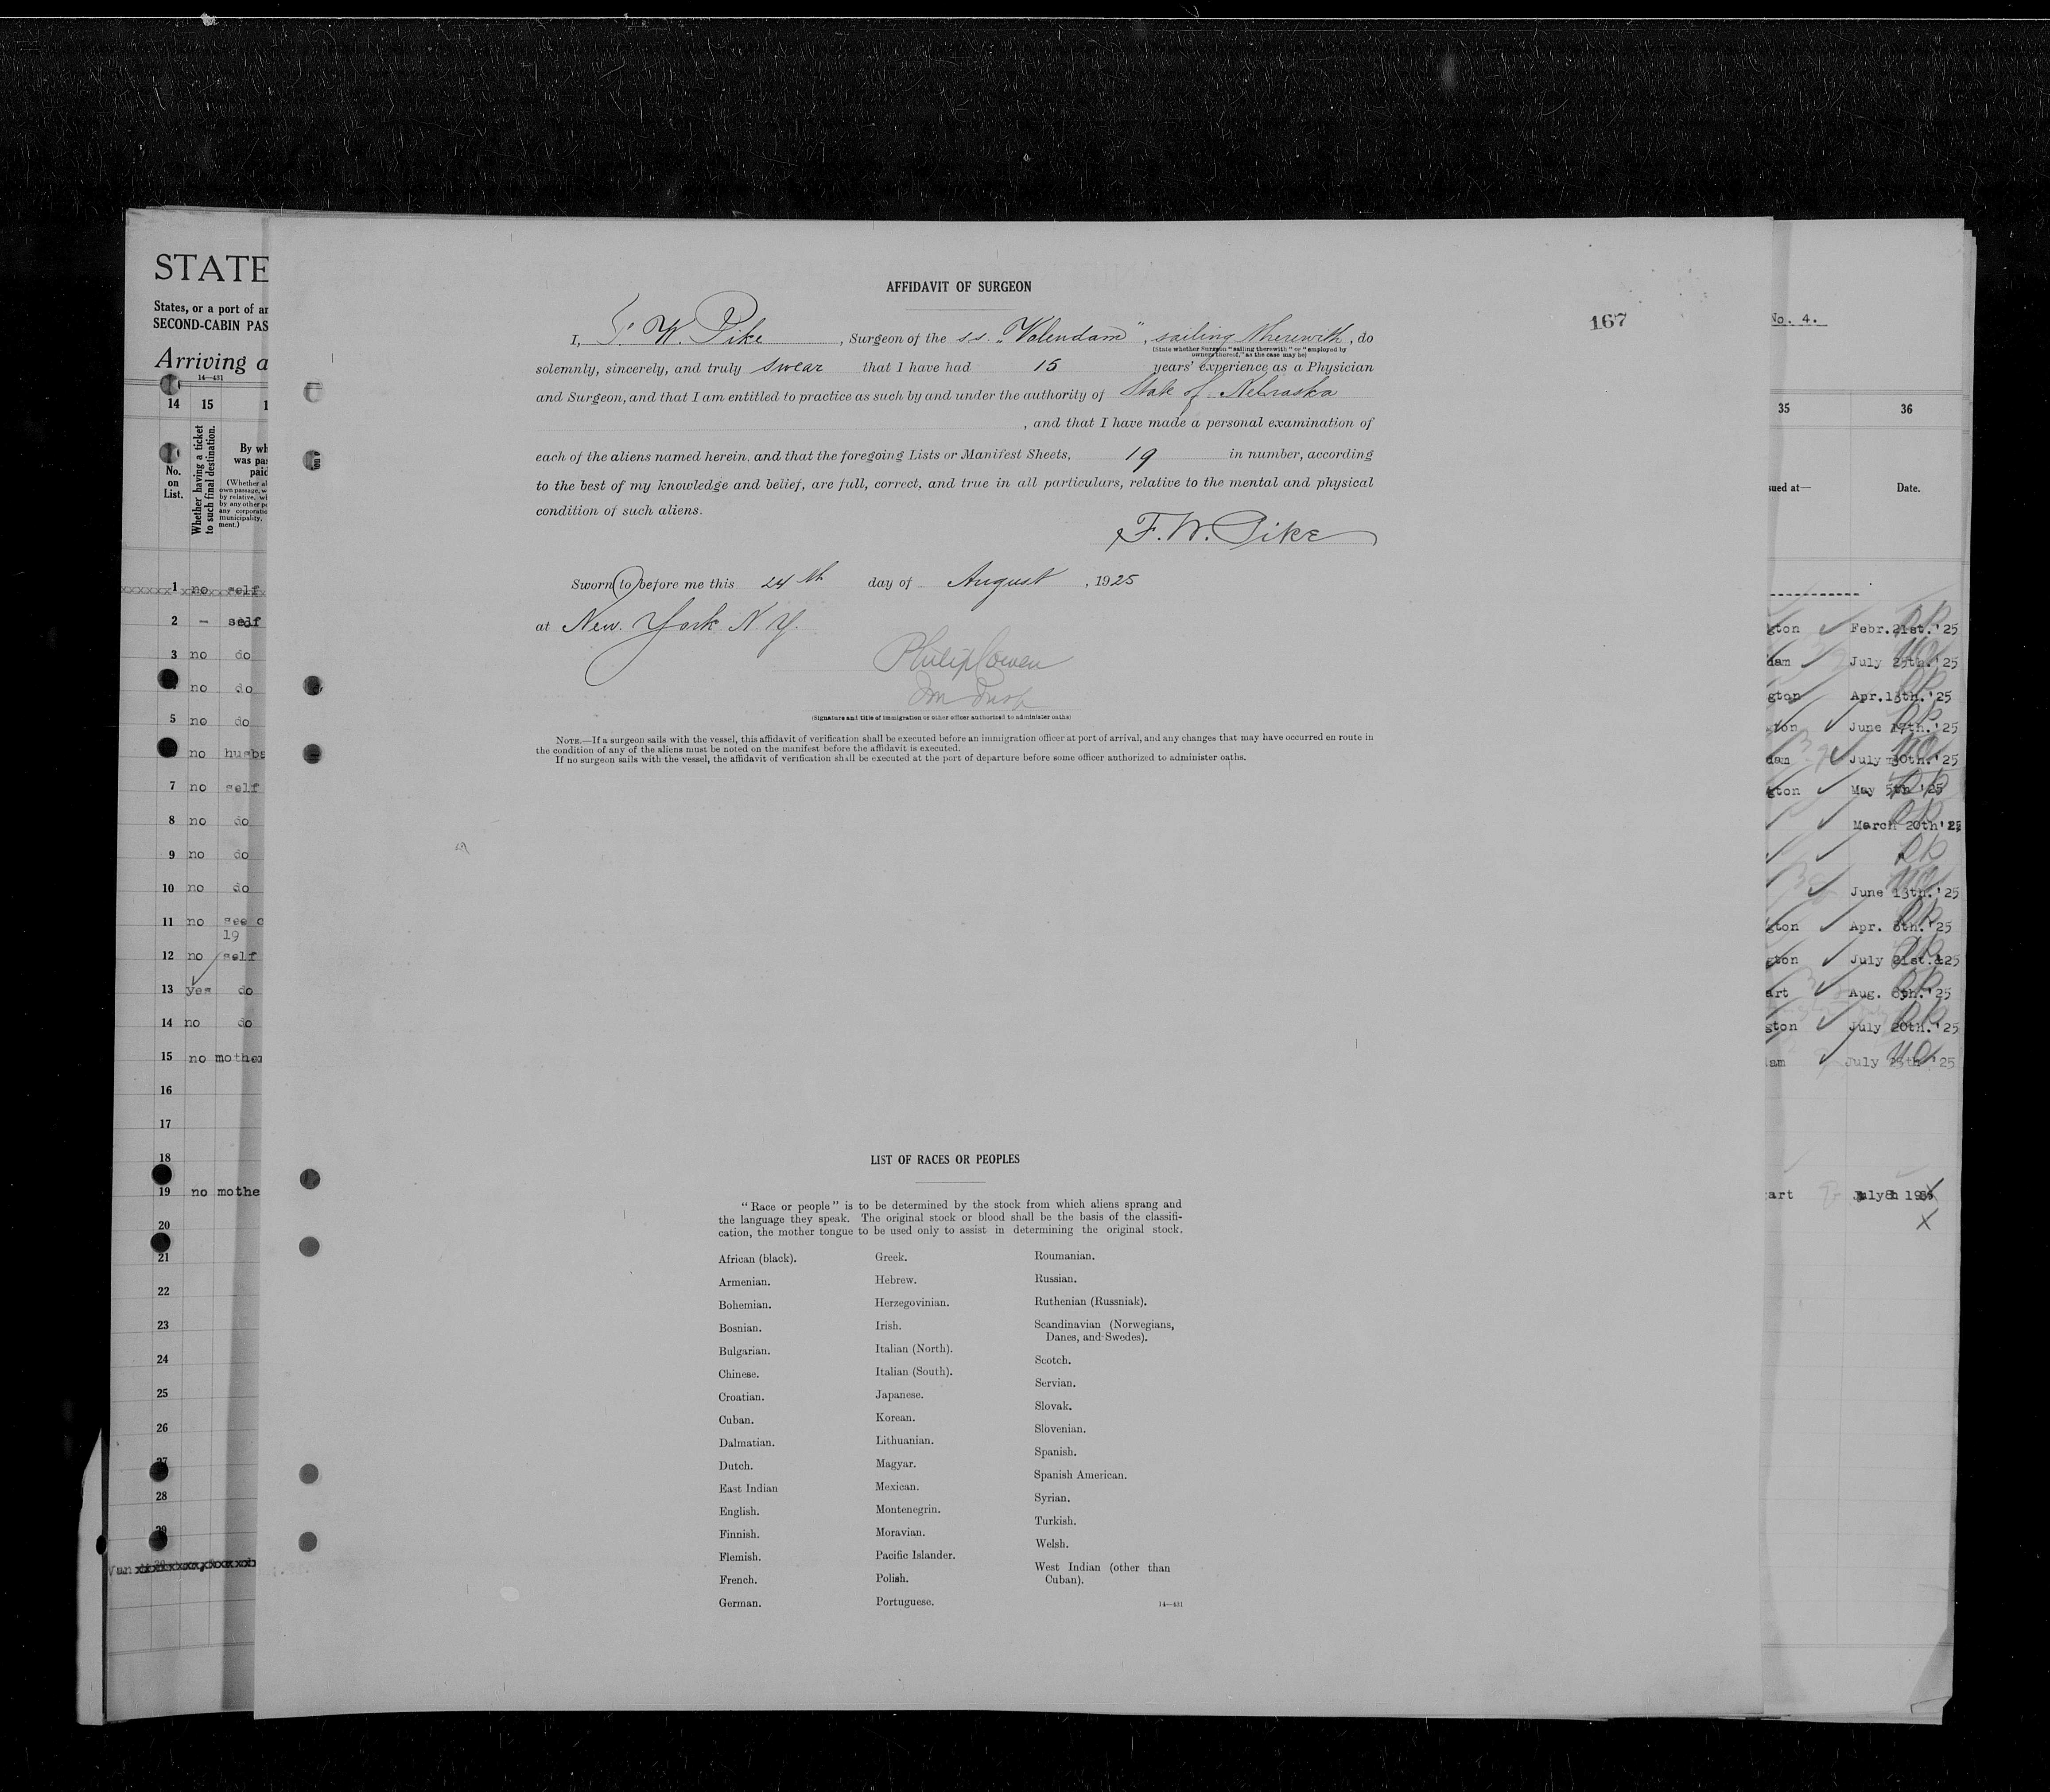 STATE
States, or a port of an
SECOND-CABIN PAS
Arriving a
14—481
14 15 1
No. on List.
Whether having a ticket to such final destination.
By wh
was pas
paid
(Whether al
own passage, w
by relative, wh
by any other pe
any corporatio
municipality,
ment.)
1 no self
2 - self
3 no do
no do
5 no do
no husba
7 no self
8 no do
9 no do
10 no do
11 no see c
19
12 no self
13 yes do
14 no do
15 no mother
16
17
18
19 no mothe
20
21
22
23
24
25
26
27
28
29
Van
AFFIDAVIT OF SURGEON
167
I, F. W. Pike, Surgeon of the s.s. „Volendam", sailing therewith, do
(State whether Surgeon "sailing therewith" or "employed by
owners thereof," as the case may be)
solemnly, sincerely, and truly swear that I have had 15 years' experience as a Physician
and Surgeon, and that I am entitled to practice as such by and under the authority of State of Nebraska
, and that I have made a personal examination of
each of the aliens named herein, and that the foregoing Lists or Manifest Sheets, 19 in number, according
to the best of my knowledge and belief, are full, correct, and true in all particulars, relative to the mental and physical
condition of such aliens.
F. W. Pike
Sworn to before me this 24th day of August, 1925
at New York N.Y.
Philip Cowen
Im Insp
(Signature and title of immigration or other officer authorized to administer oaths)
NOTE.—If a surgeon sails with the vessel, this affidavit of verification shall be executed before an immigration officer at port of arrival, and any changes that may have occurred en route in
the condition of any of the aliens must be noted on the manifest before the affidavit is executed.
If no surgeon sails with the vessel, the affidavit of verification shall be executed at the port of departure before some officer authorized to administer oaths.
LIST OF RACES OR PEOPLES
"Race or people" is to be determined by the stock from which aliens sprang and
the language they speak. The original stock or blood shall be the basis of the classifi-
cation, the mother tongue to be used only to assist in determining the original stock.
African (black).
Armenian.
Bohemian.
Bosnian.
Bulgarian.
Chinese.
Croatian.
Cuban.
Dalmatian.
Dutch.
East Indian
English.
Finnish.
Flemish.
French.
German.
Greek.
Hebrew.
Herzegovinian.
Irish.
Italian (North).
Italian (South).
Japanese.
Korean.
Lithuanian.
Magyar.
Mexican.
Montenegrin.
Moravian.
Pacific Islander.
Polish.
Portuguese.
Roumanian.
Russian.
Ruthenian (Russniak).
Scandinavian (Norwegians,
Danes, and Swedes).
Scotch.
Servian.
Slovak.
Slovenian.
Spanish.
Spanish American.
Syrian.
Turkish.
Welsh.
West Indian (other than
Cuban).
14—481
No. 4.
35 36
sued at— Date.
gton Febr.21st.'25
dam July 25th.'25
gton Apr.13th.'25
ton June 17th.'25
dam July 30th.'25
gton May 5th '25
March 20th'25
June 13th.'25
gton Apr. 8th.'25
gton July 21st.'25
art Aug. 6th.'25
gton July 20th.'25
am July 25th '25
art